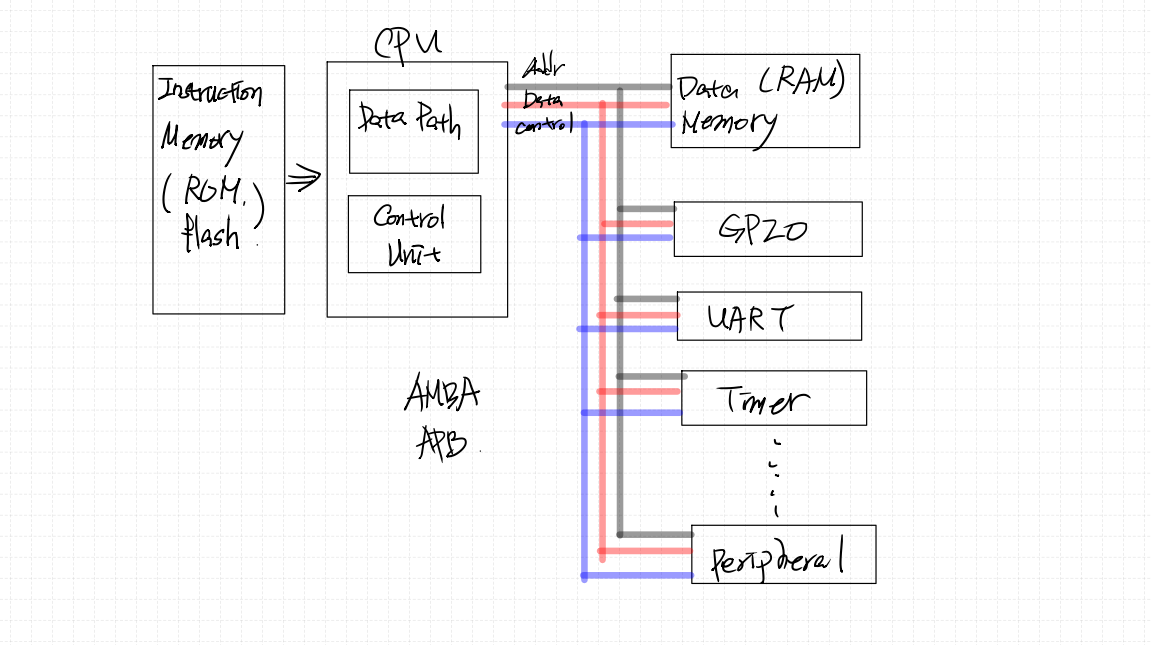 CPU
Instruction
Memory
(ROM,
flash)
Data Path
Control
Unit
Addr
Data
control
Data (RAM)
Memory
GPIO
UART
Timer
Peripheral
AMBA
APB